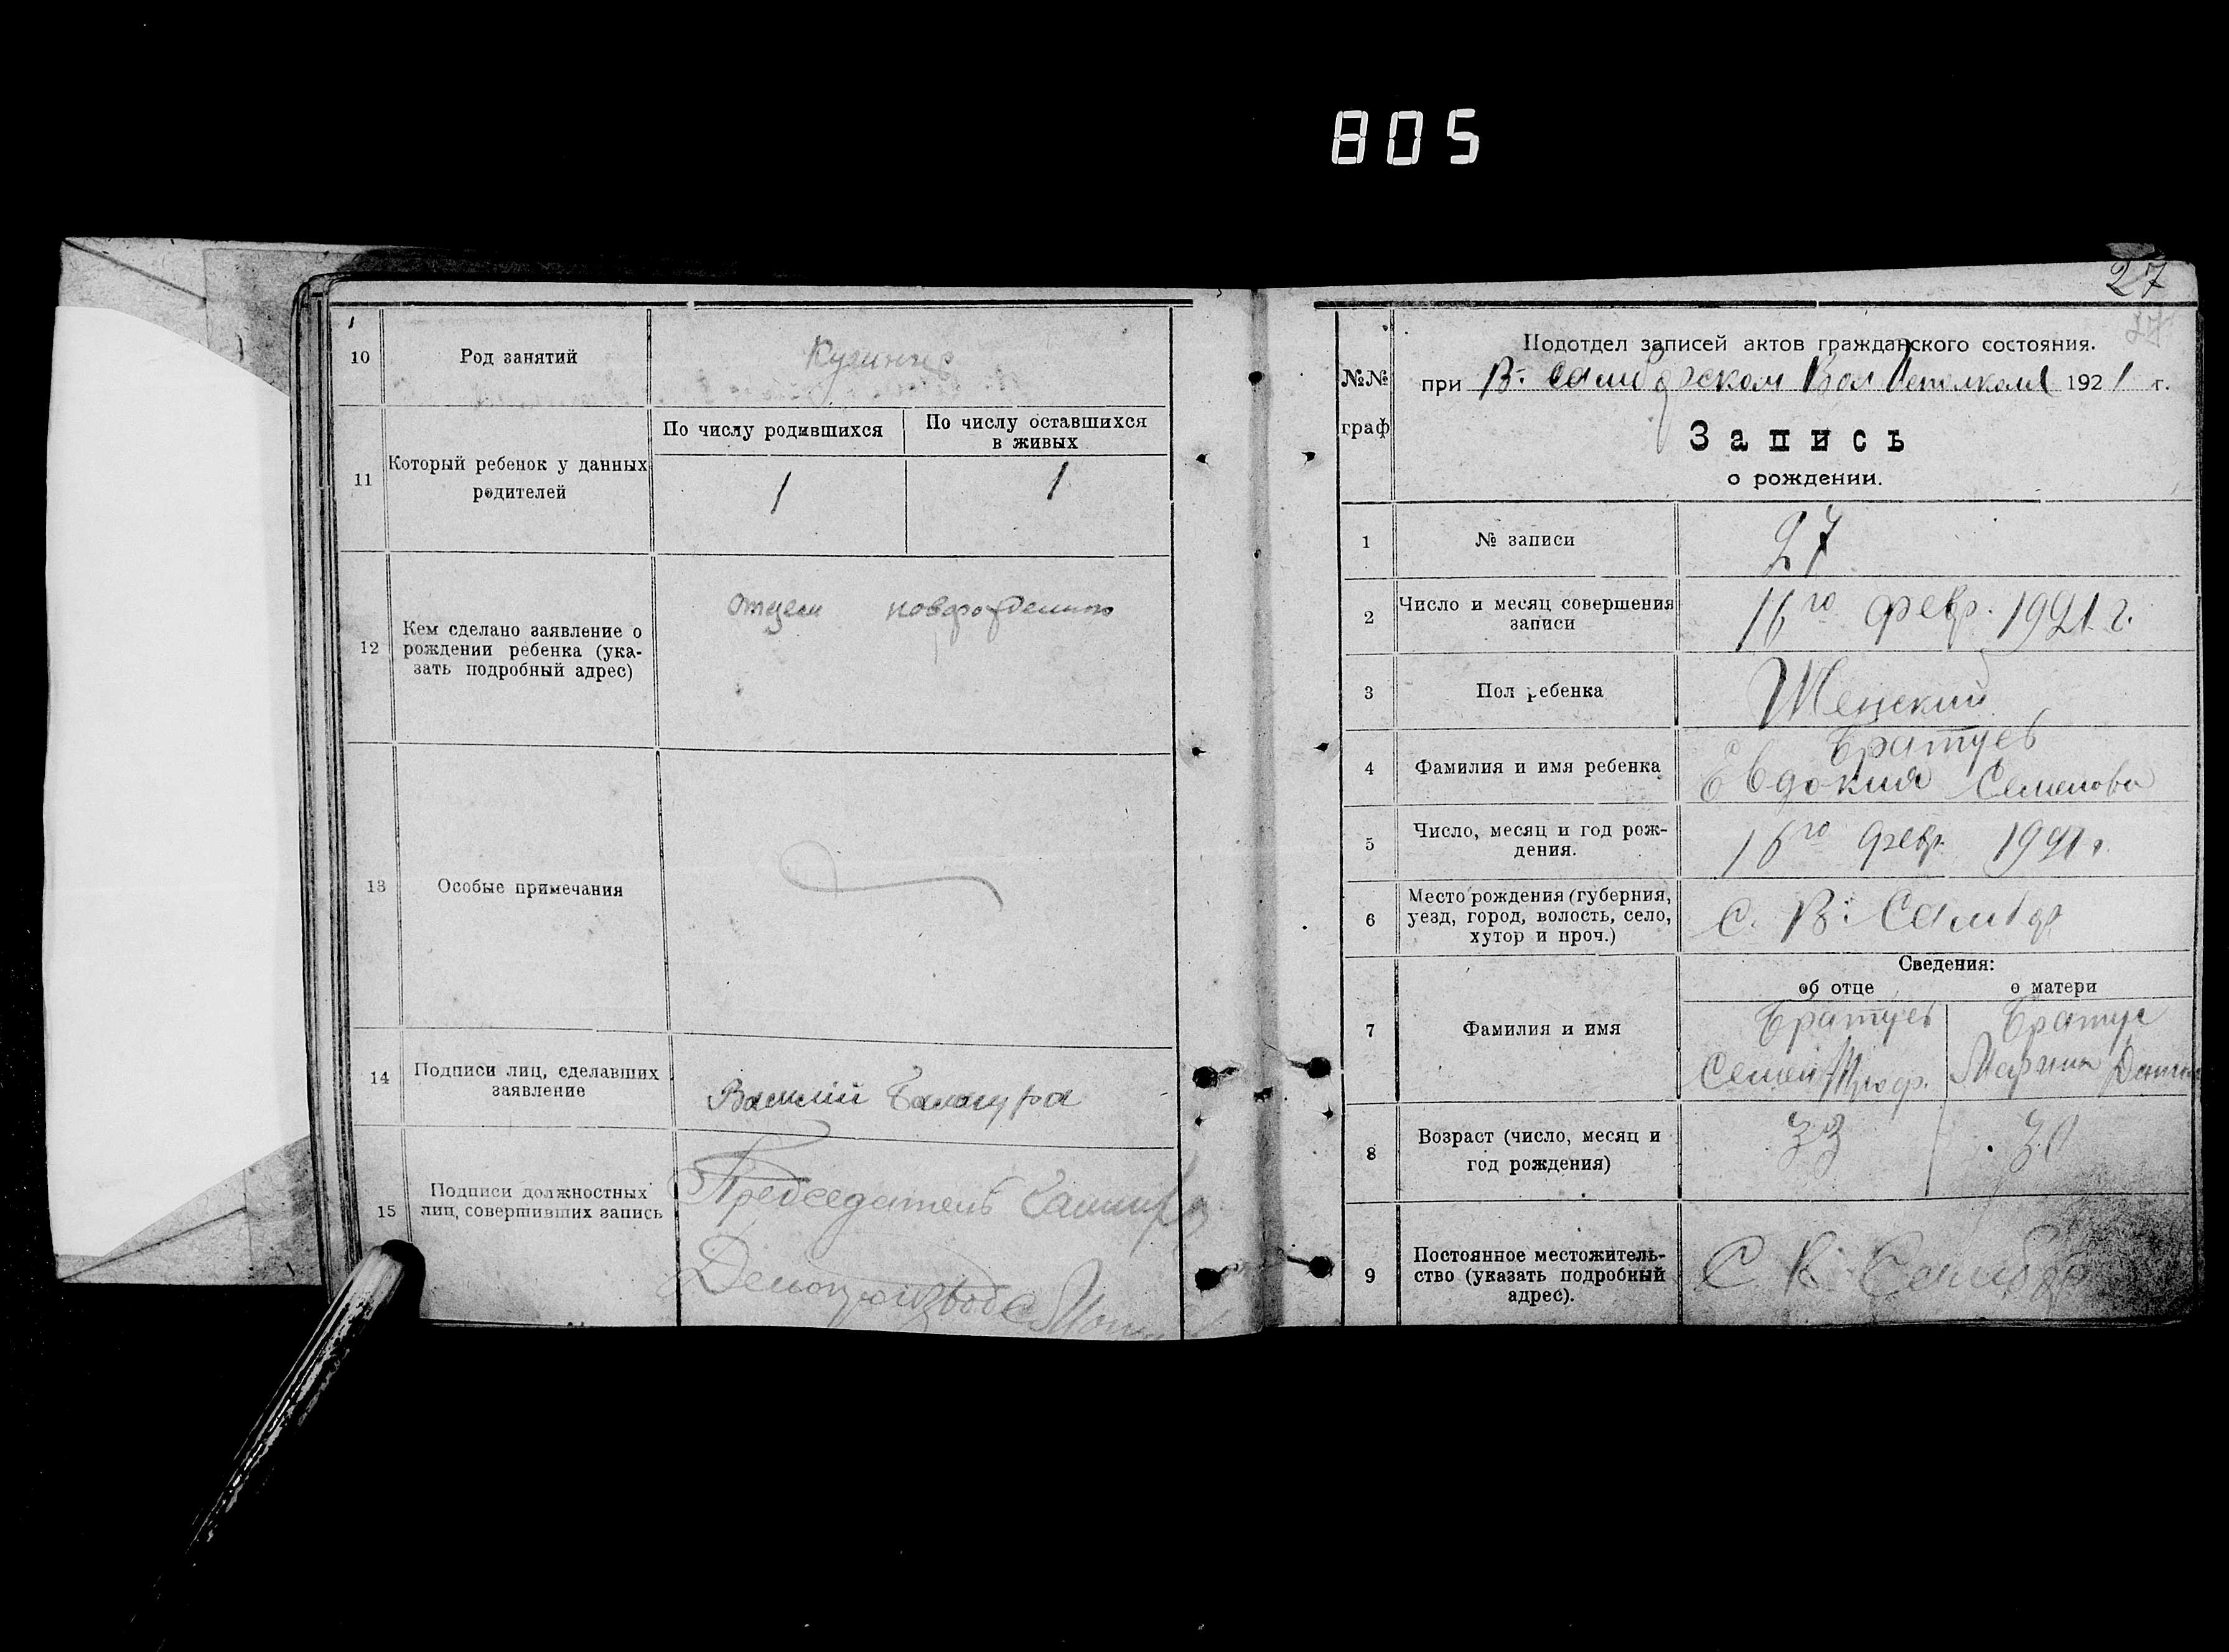 805
10
Род занятий
11
Который ребенок у данных
родителей
По числу родившихся
По числу оставшихся
в живых
1
1
12
Кем сделано заявление о
рождении ребенка (ука-
зать подробный адрес)
Отцем новорожденного
13
Особые примечания
14
Подписи лиц, сделавших
заявление
Василий
15
Подписи должностных
лиц, совершивших запись
Председатель
27
27
№№
граф
Подотдел записей актов гражданского состояния.
при В. Самбурском Вол Исполкоме 1921 г.
Запись
о рождении.
1
№ записи
27
2
Число и месяц совершения
записи
16го февр. 1921 г.
3
Пол ребенка
Женский
4
Фамилия и имя ребенка
Братусь
Евдокия Семенова
5
Число, месяц и год рож-
дения.
16го февр 1921 г.
6
Место рождения (губерния,
уезд, город, волость, село,
хутор и проч.)
С. В. Самбур
Сведения:
об отце
о матери
7
Фамилия и имя
Братусь
Семен Троф.
Братус
8
Возраст (число, месяц и
год рождения)
33
30
9
Постоянное местожитель-
ство (указать подробный
адрес).
С В. Самбур